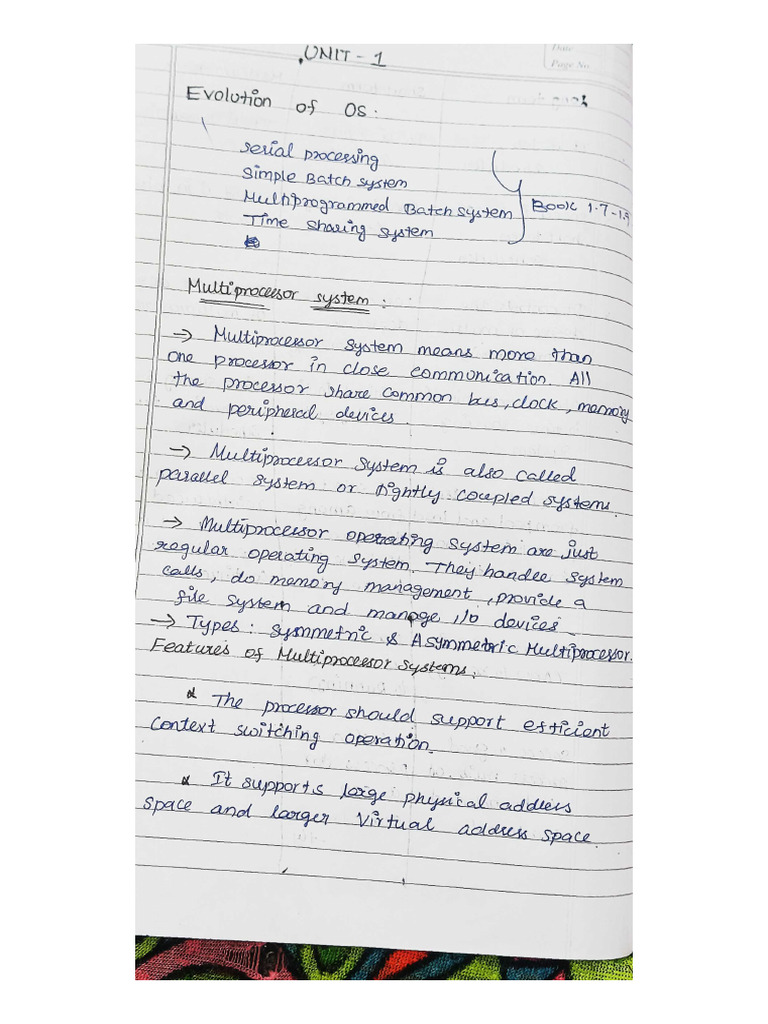 Date
Page No
UNIT - 1
Evolution of OS.
serial processing
Simple Batch system
Multiprogrammed Batch System
Time sharing system
Book 1.7-1.9
Multiprocessor system :
→ Multiprocessor system means more than
one processor in close communication. All
the processor share common bus, clock, memory
and peripheral devices.
→ Multiprocessor system is also called
parallel system or tightly coupled systems.
→ Multiprocessor operating system are just
regular operating system. They handle system
calls, do memory management, provide a
file system and manage I/o devices.
→ Types : Symmetric & Asymmetric Multiprocessor.
Features of Multiprocessor Systems :
* The processor should support efficient
context switching operation.
* It supports large physical address
space and larger virtual address space.